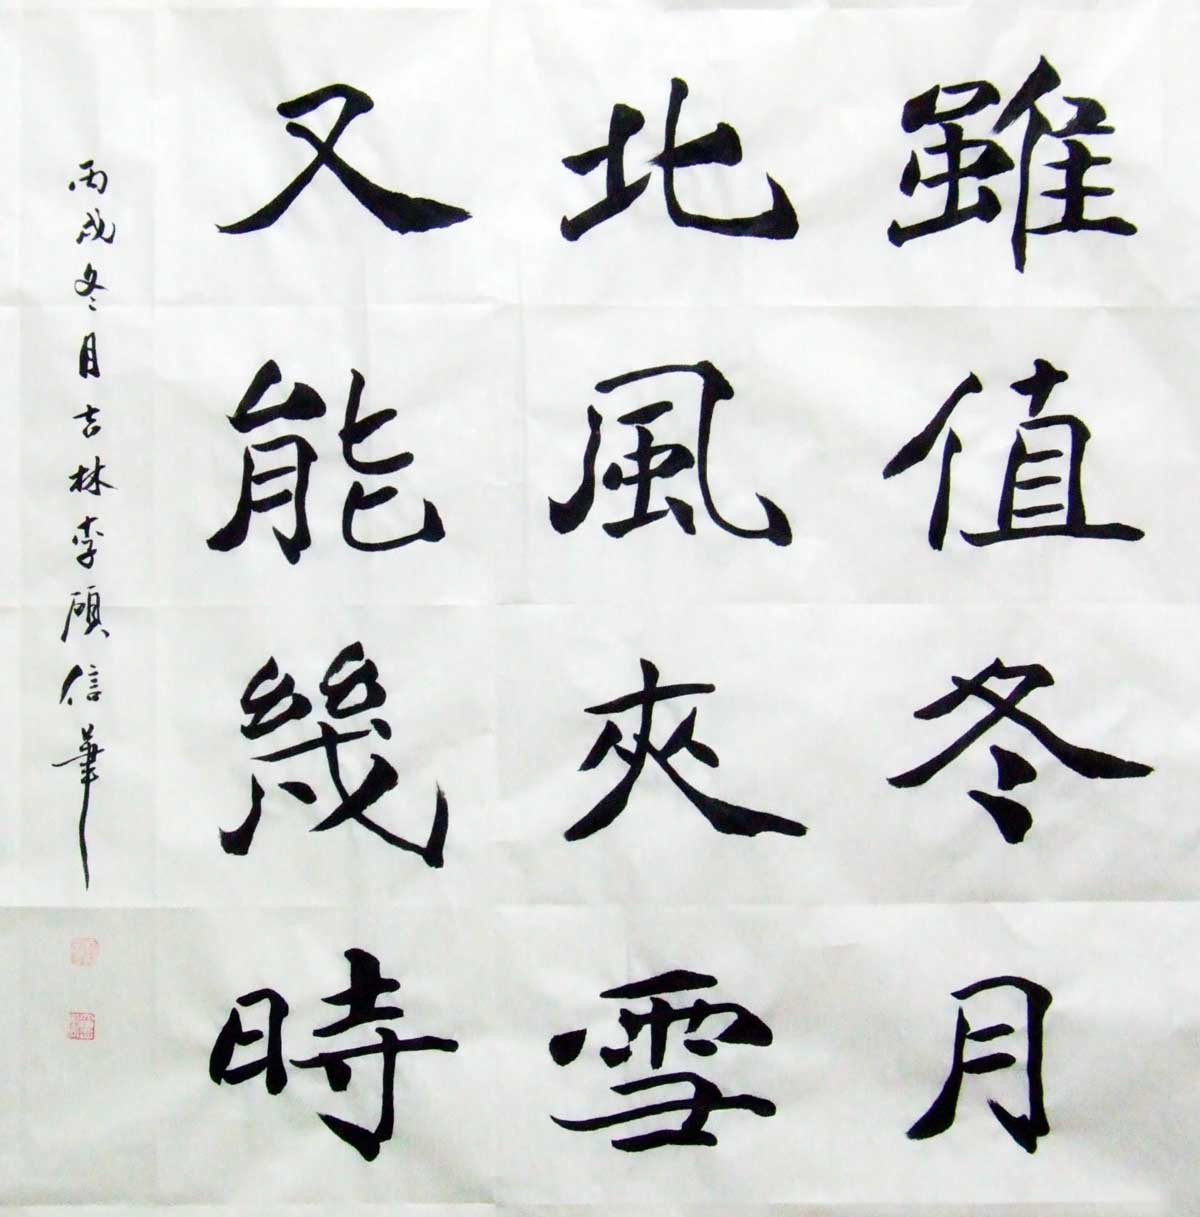 雖值冬月
北風夾雪
又能幾時
丙戌冬月吉林李碩信筆